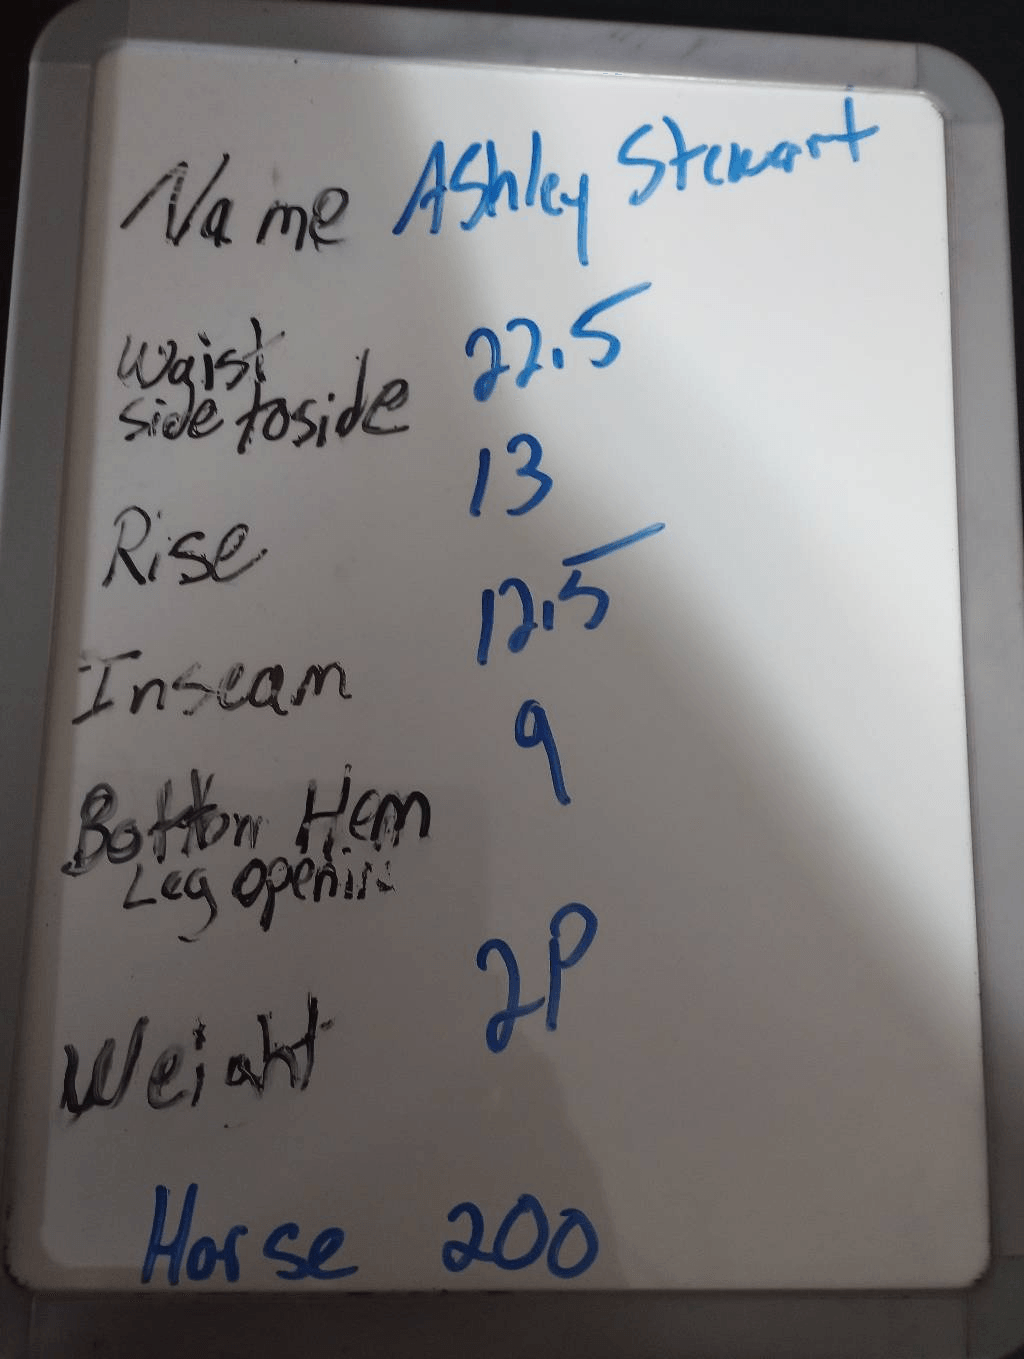 Name Ashley Stewart
Waist 22.5
side to side
13
Rise
12.5
Inseam
9
Bottom Hem
Leg opening
2P
Weight
Horse 200